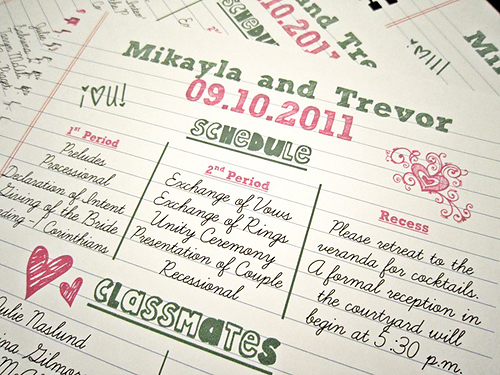 Mikayla and Trevor
09.10.2011
i♥u!
SCHEDULE
1st Period
Preludes
Processional
Declaration of Intent
Giving of the Bride
1 Corinthians
2nd Period
Exchange of Vows
Exchange of Rings
Unity Ceremony
Presentation of Couple
Recessional
Recess
Please retreat to the
veranda for cocktails.
A formal reception in
the courtyard will
begin at 5:30 p.m.
CLASSMATES
Julie Naslund